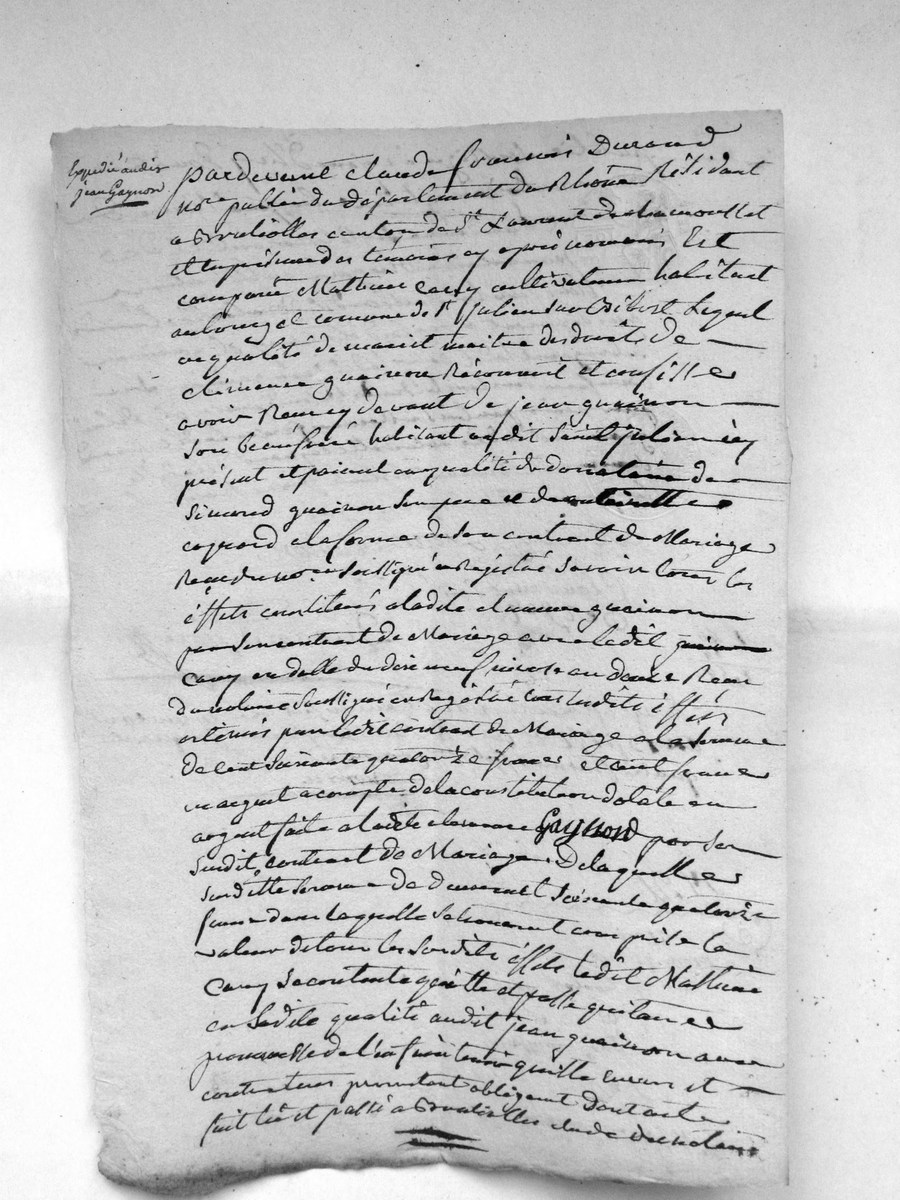 Expedié audit
Jean Gagnon
pardevant claude françois Durand
no.re public du département du Rhône Résidant
a Brulliolles canton de St Laurent de chamousset
et en présence des témoins cy après nommés Est
comparu Mathieu Cavy cultivateur habitant
au bourg et comune de St Julien sur Bibost Lequel
en qualité de mari et maitre des droits de
clémence guainon Reconnoit et confesse
avoir Reçu cy devant de jean guainon
son beaufrere habitant audit Saint julien icy
présent et paient en qualité de donataire de
simond guainon son pere et de
a la forme de son contrat de Mariage
Reçu du no.re soussigné enRegistré savoir tous les
éffets constitués a ladite clemence guainon
par son contrat de Mariage avec ledit
Cavy en datte du dix neuf Reçu
du notaire soussigné enRegistré tous lesdits éffets
estimés par ledit contrat de Mariage a la somme
de cent soixante quatorze francs et cent francs
en argent a compte de la constitution dotale en
argent faite a ladite clemence Gagnond par son
susdit contrat de Mariage. De laquelle
susditte somme de deux cent soixante quatorze
francs dans laquelle se trouvent comprise la
valeur de tous les susdits éffets ledit Mathieu
Cavy se contente quitte et passe quitance
en sadite qualité audit jean guainon avec
promesse de l'en faire tenir quitte envers et
contre tous promettant obligeant dont acte
fait lû et passé a Brulliolles étude du notaire